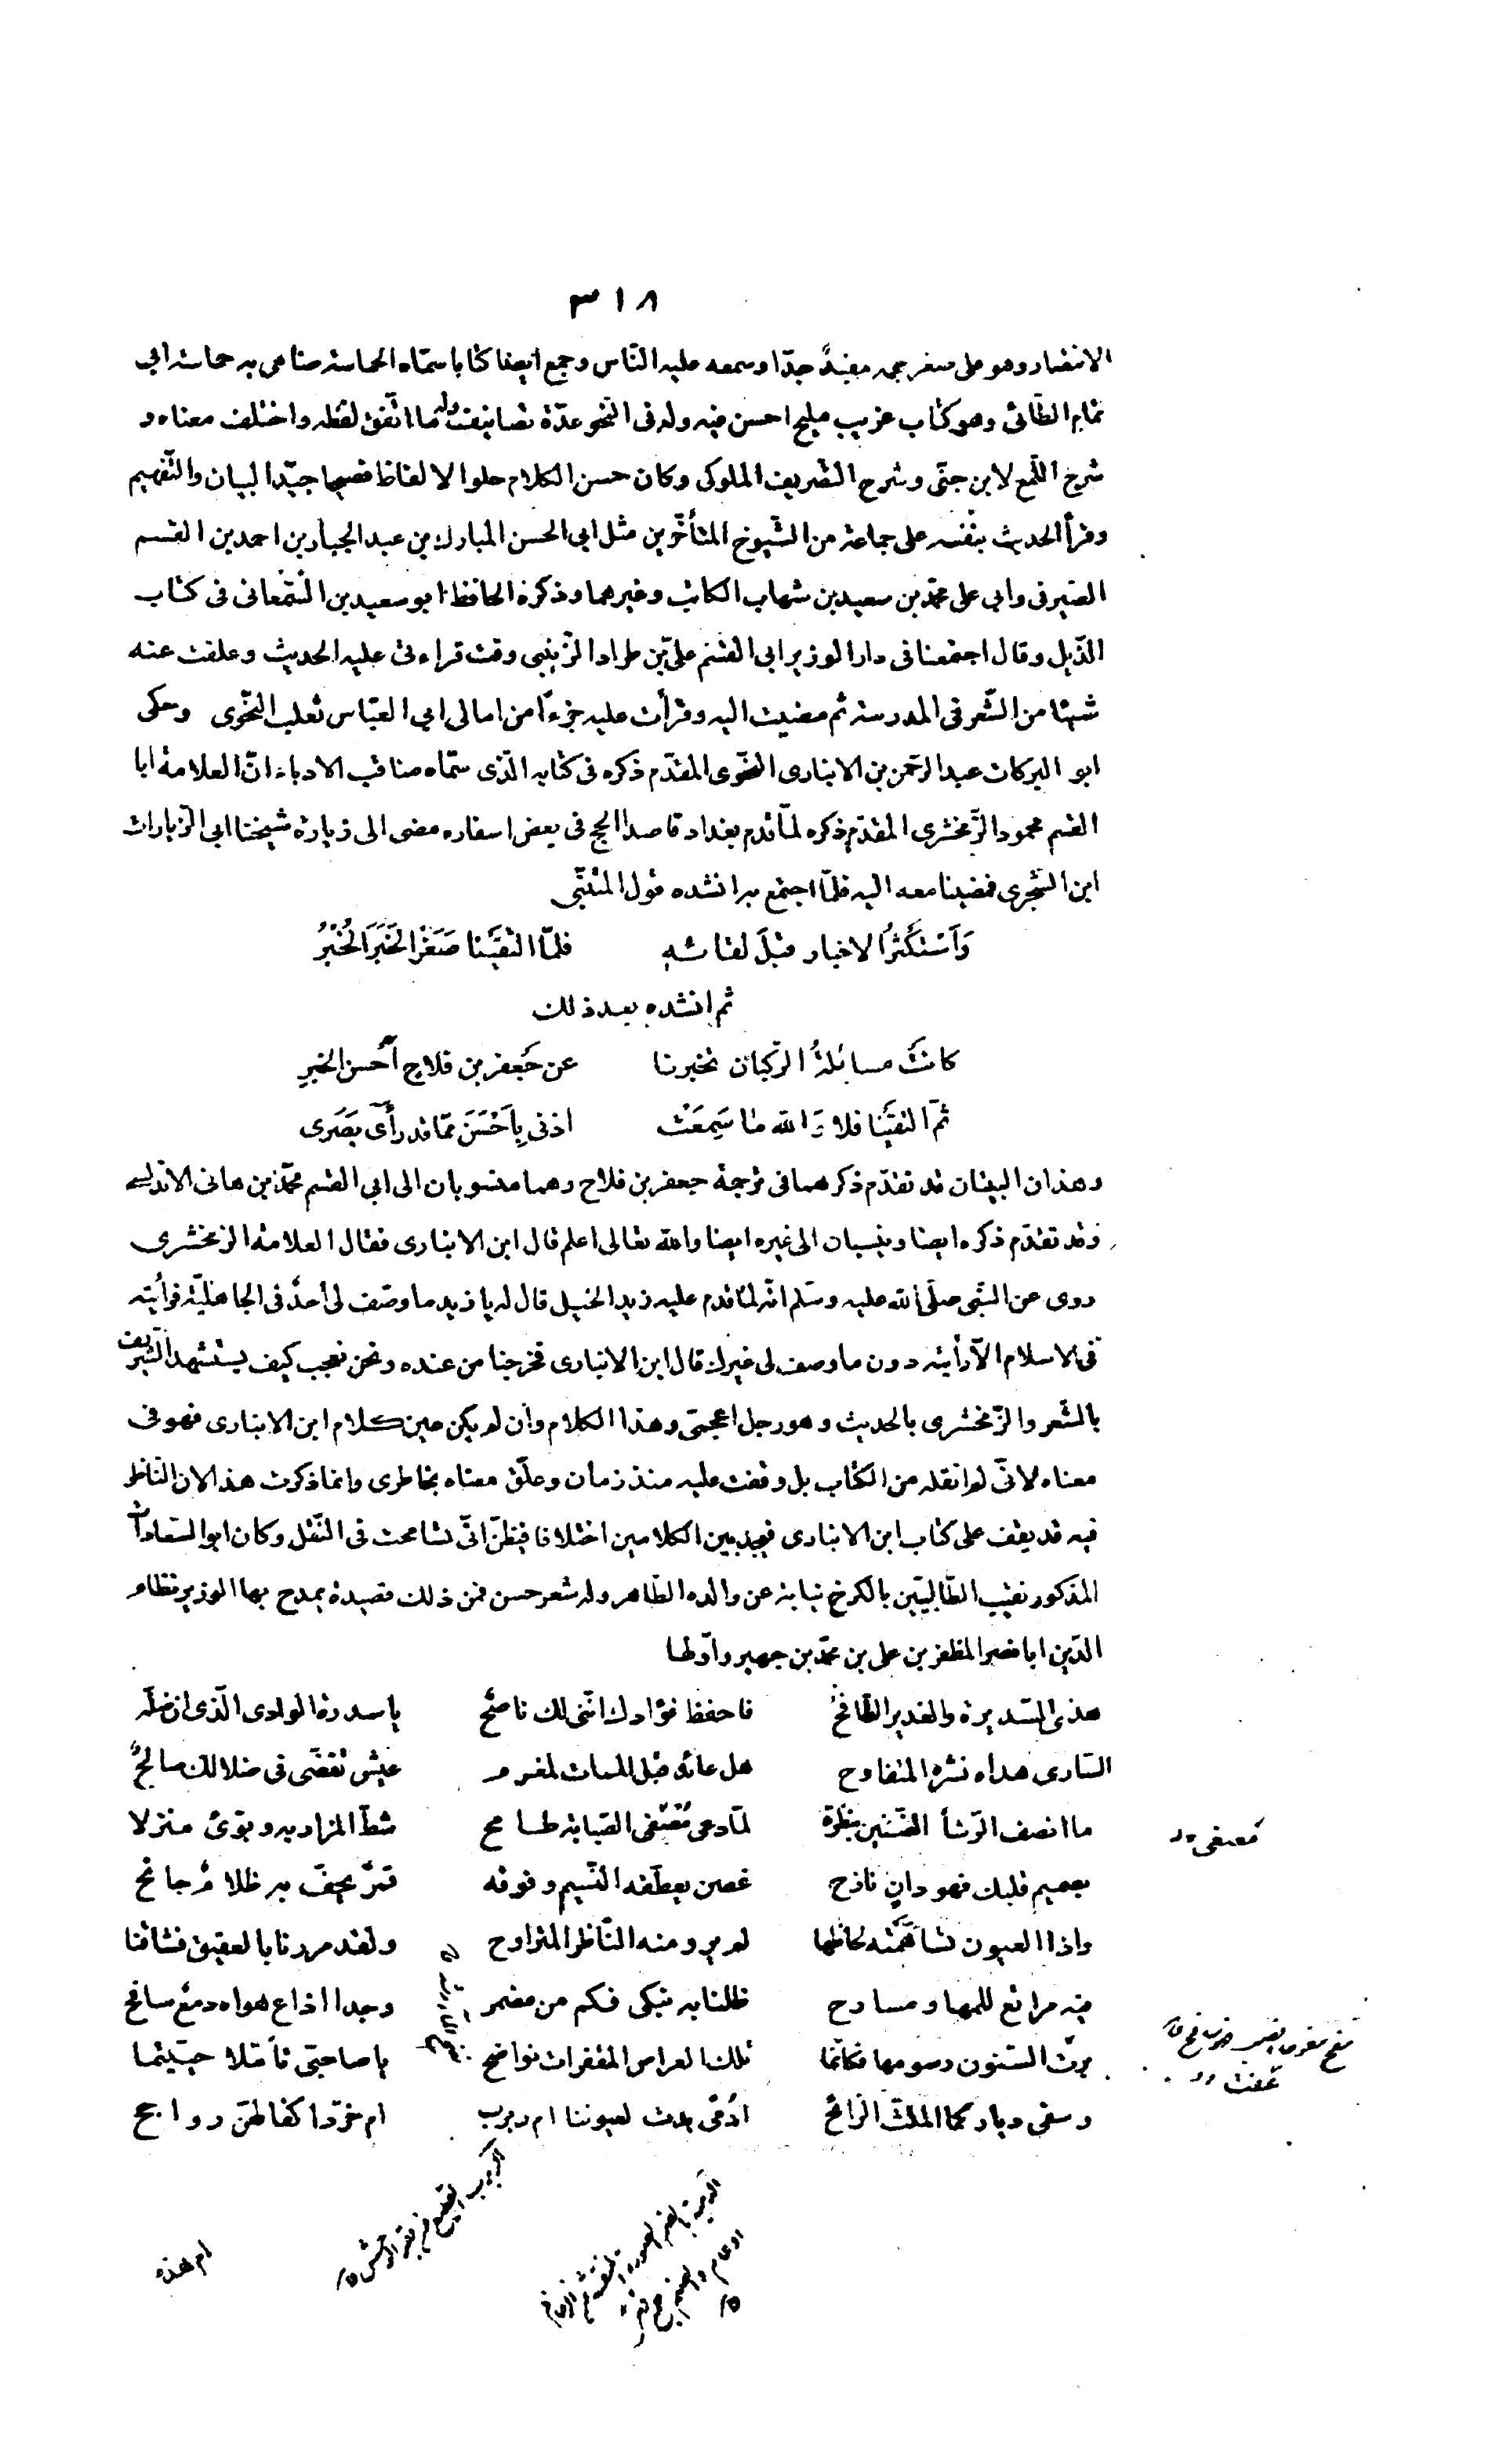 ٣١٨
الانتصار وهو على صغر حجمه مفيدٌ جدّا وسمعه عليه النّاس وجمع ايضا كتابا سمّاه الحماسة ضاهى به حماسة ابى
تمام الطّائى وهو كتاب غريب مليح احسن فيه وله فى النّحو عدّة تصانيف وله ما اتّفق لفظه واختلف معناه و
شرح اللّمع لابن جنّى وشرح التّصريف الملوكى وكان حسن الكلام حلوا لالفاظ فصيحا جيّد البيان والتّفهيم
وقرأ الحديث بنفسه على جماعة من الشّيوخ المتأخّرين مثل ابى الحسن المبارك بن عبد الجبار بن احمد بن القسم
الصّيرفى وابى على محمّد بن سعيد بن شهاب الكاتب وغيرهما وذكره الحافظ ابو سعيد بن السّمعانى فى كتاب
الذّيل وقال اجتمعنا فى دار الوزير ابى القسم علىّ بن طراد الزّينبى وقت قراءتى عليه الحديث وعلقت عنه
شيئا من الشّعر فى المدرسة ثم مضيت اليه وقرأت عليه جزءًا من امالى ابى العبّاس ثعلب النّحوى وحكى
ابو البركات عبد الرّحمن بن الانبارى النّحوى المقدّم ذكره فى كتابه الّذى سمّاه مناقب الادباء انّ العلامة ابا
القسم محمود الزّمخشرى المقدّم ذكره لمّا قدم بغداد قاصدا الحج فى بعض اسفاره مضى الى زيارة شيخنا ابى الزيارات
ابن الشّجرى فمضينا معه اليه فلمّا اجتمع به انشده قول المتنبّى
وَاَسْتَكْثِرُ الاخبار قبلَ لقائهِ فلمّا التقَيْنا صَغَّرَ الخَبَرَ الخُبْرُ
ثم انشده بعد ذلك
كانَتْ مسائلةُ الرّكبان تخبرنا عن جَعفر بن فلاحٍ اَحسن الخبرِ
ثمّ التقَيْنا فلا وَالله ما سَمِعَتْ اذنى بِاَحْسَنَ ممّا قد رأَى بَصَرى
وهذان البيتان قد تقدّم ذكرهما فى ترجمة جعفر بن فلاح وهما منسوبان الى ابى القسم محمّد بن هانى الاندلسى
وقد تقدّم ذكره ايضا وينسبان الى غيره ايضا والله تعالى اعلم قال ابن الانبارى فقال العلامة الزمخشرى
روى عن النّبى صلّى الله عليه وسلم انّه لمّا قدم عليه زيد الخيل قال له يا زيد ما وصف لى احدٌ فى الجاهليّة فرأيته
فى الاسلام الّا رأيته دون ما وصف لى غيرك قال ابن الانبارى فخرجنا من عنده ونحن نعجب كيف يستشهد الشّريف
بالشّعر والزّمخشرى بالحديث وهو رجل اعجمىّ وهذا الكلام وان لم يكن عين كلام ابن الانبارى فهو فى
معناه لانّى لم انقله من الكتاب بل وقفت عليه منذ زمان وعلق معناه بخاطرى وانما ذكرت هذا لان النّاظر
فيه قد يقف على كتاب ابن الانبارى فيجد بين الكلامين اختلافا فيظنّ انّى تسامحت فى النّقل وكان ابو السّعادات
المذكور نقيب الطّالبيّين بالكرخ نيابة عن والده الطّاهر وله شعر حسن فمن ذلك قصيدة يمدح بها الوزير نظام
الدّين ابا نصر المظفر بن على بن محمّد بن جهير واوّلها
هذى السّديرة والغدير الطّافحُ فاحفظ فؤادك انّنى لك ناصحُ يا سدرة الوادى الّذى ان ضلّه
السّارى هداه نشره المتفاوح هل عائد قبل الممات لمغرم عيش تقضّى فى ظلالك صالحٌ
ما انصف الرّشأ الضّنين بنظرة لمّا دعى مُصْغى الصّبابة طامح شطّ المزار به وبوّئ منزلا
بصميم قلبك فهو دانٍ نازح غصن يعطّفه النّسيم وفوقه قمرٌ يحفّ به ظلامٌ جانح
واذا العيون تساهمته لحاظها لم يرو منه النّاظر المتراوح ولقد مررنا بالعقيق فشاقنا
فيه مراتع للمها ومسارح ظلنا به نبكى فكم من مضمر وجدا اذاع هواه دمع سافح
برت السّنون رسومها فكانّما تلك العراص المقفرات نواضح يا صاحبىّ تأمّلا حيّيتما
وسقى دياركما الملثّ الرّائح ادُمًى بدت لعيوننا ام ربرب ام خرّد اكفالهنّ رواجح
ام هذه